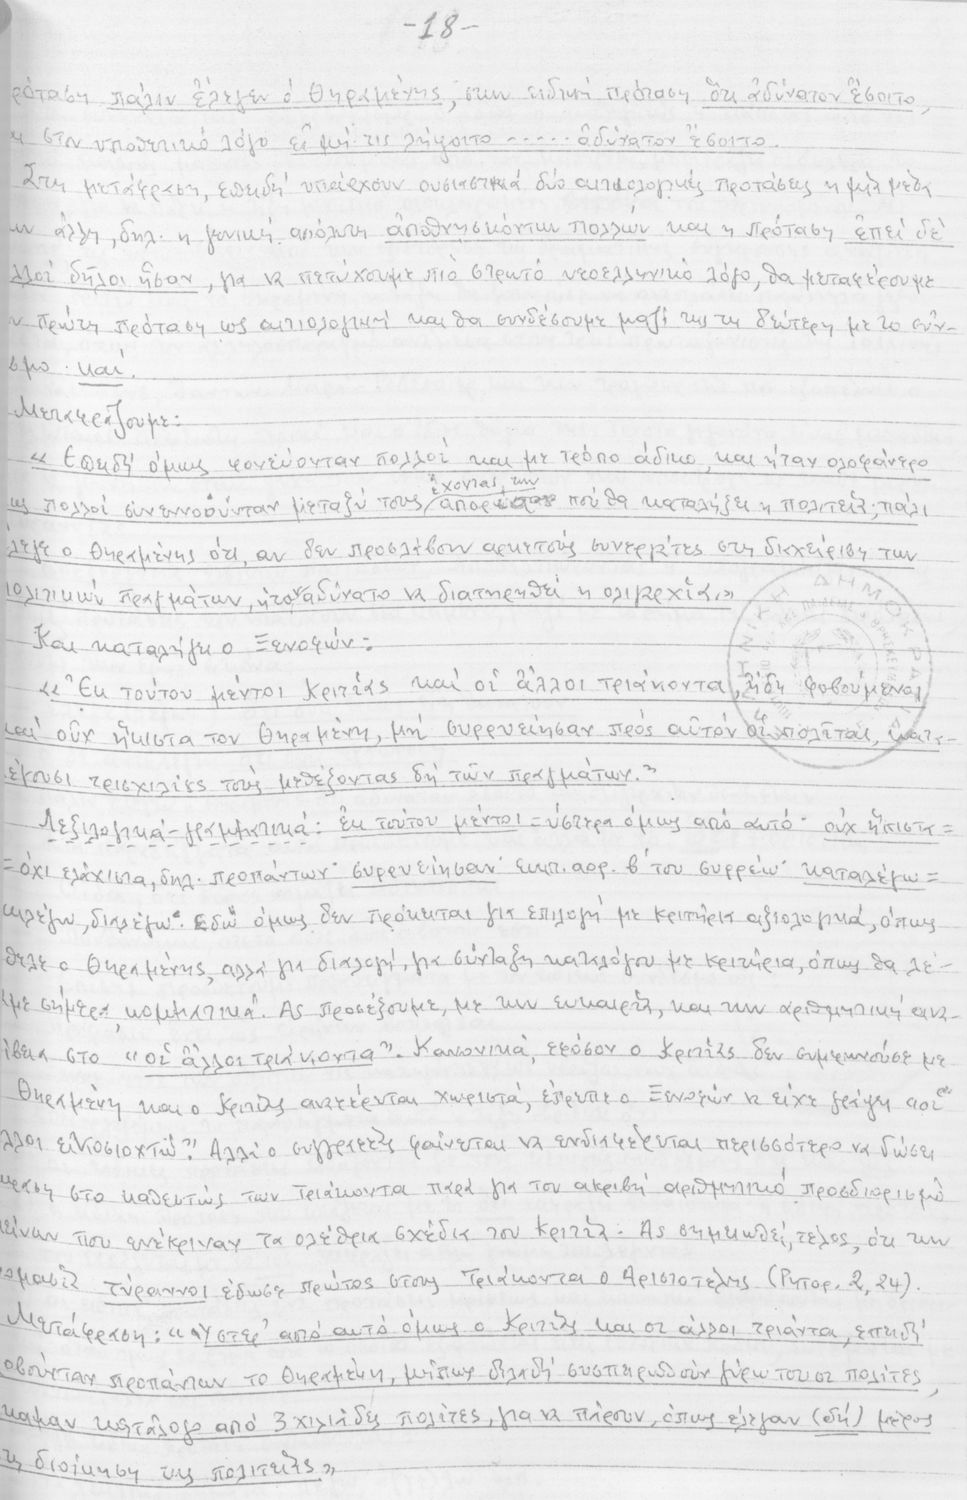 -18-
ρόταση πάλιν ἔλεγεν ὁ Θηραμένης, στην ειδική πρόταση ὅτι ἀδύνατον ἔσοιτο,
ι στον υποθετικό λόγο εἰ μή τις λήψοιτο ..... ἀδύνατον ἔσοιτο.
Στη μετάφραση, επειδή υπάρχουν ουσιαστικά δύο αιτιολογικές προτάσεις η μία μετά
ην άλλη, δηλ. η γενική απόλυτη ἀποθνησκόντων πολλῶν και η πρόταση ἐπεί δέ
λλοί δῆλοι ἦσαν, για να πετύχουμε πιό στρωτό νεοελληνικό λόγο, θα μεταφέρουμε
ν πρώτη πρόταση ως αιτιολογική και θα συνδέσουμε μαζί της τη δεύτερη με το σύν-
σμο καί.
Μεταφράζουμε:
« Επειδή όμως φονεύονταν πολλοί και με τρόπο άδικο, και ήταν ολοφάνερο
ως πολλοί συνεννοούνταν μεταξύ τους ἔχοντας την πού θα καταλήξει η πολιτεία, πάλι
λεγε ο Θηραμένης ότι, αν δεν προσλάβουν αρκετούς συνεργάτες στη διαχείριση των
ολιτικών πραγμάτων, ήταν αδύνατο να διατηρηθεί η ολιγαρχία.»
Και καταλήγει ο Ξενοφών:
«Ἐκ τούτου μέντοι Κριτίας καί οἱ ἄλλοι τριάκοντα, ἤδη φοβούμενοι
καί οὐχ ἥκιστα τον Θηραμένη, μή συρρυείησαν πρός αὐτόν οἱ πολῖται, κατα-
λέγουσι τρισχιλίες τούς μεθέξοντας δή τῶν πραγμάτων.»
Λεξιλογικά-γραμματικά: ἐκ τούτου μέντοι = ύστερα όμως από αυτό· οὐχ ἥκιστα =
= όχι ελάχιστα, δηλ. προπάντων· συρρυείησαν ευκτ. αορ. β΄ του συρρέω· καταλέγω =
διαλέγω. εδώ όμως δεν πρόκειται για επιλογή με κριτήρια αξιολογικά, όπως
θελε ο Θηραμένης, αλλά για διαλογή, για σύνταξη καταλόγου με κριτήρια, όπως θα λέ-
με σήμερα, κομματικά. Ας προσέξουμε, με την ευκαιρία, και την αριθμητική ανα-
ίβεια στο "οἱ ἄλλοι τριάκοντα". Κανονικά, εφόσον ο Κριτίας δεν συμφωνούσε με
Θηραμένη και ο Κριτίας αναφέρνται χωριστά, έπρεπε ο Ξενοφών να είχε γράψει "οἱ
λλοι εἰκοσιοχτώ". Αλλά ο συγγραφέας φαίνεται να ενδιαφέρεται περισσότερο να δώσει
φαση στο καθεστώς των Τριάκοντα παρά για τον ακριβή αριθμητικό προσδιορισμό
είνων που ενέκριναν τα ολέθρια σχέδια του Κριτία. Ας σημειωθεί, τέλος, ότι την
ομασία τύραννοι έδωσε πρώτος στους Τριάκοντα ο Αριστοτέλης (Ρητορ. 2, 24).
Μετάφραση: «Ύστερ' από αυτό όμως ο Κριτίας και οι άλλοι τριάντα, επειδή
οβούνταν προπάντων το Θηραμένη, μήπως δηλαδή συσπειρωθούν γύρω του οι πολίτες,
καμαν κατάλογο από 3 χιλιάδες πολίτες, για να πάρουν, όπως έλεγαν (δή) μέρος
τη διοίκηση της πολιτείας»